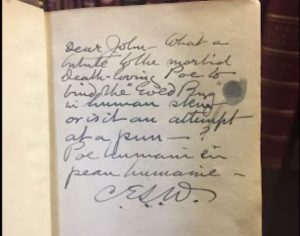 Dear John – What a
tribute to the morbid
Death-loving Poe to
bind the "Gold Bug"
in human skin
or is it an attempt
at a pun — ?
Poe humaine en
peau humaine –